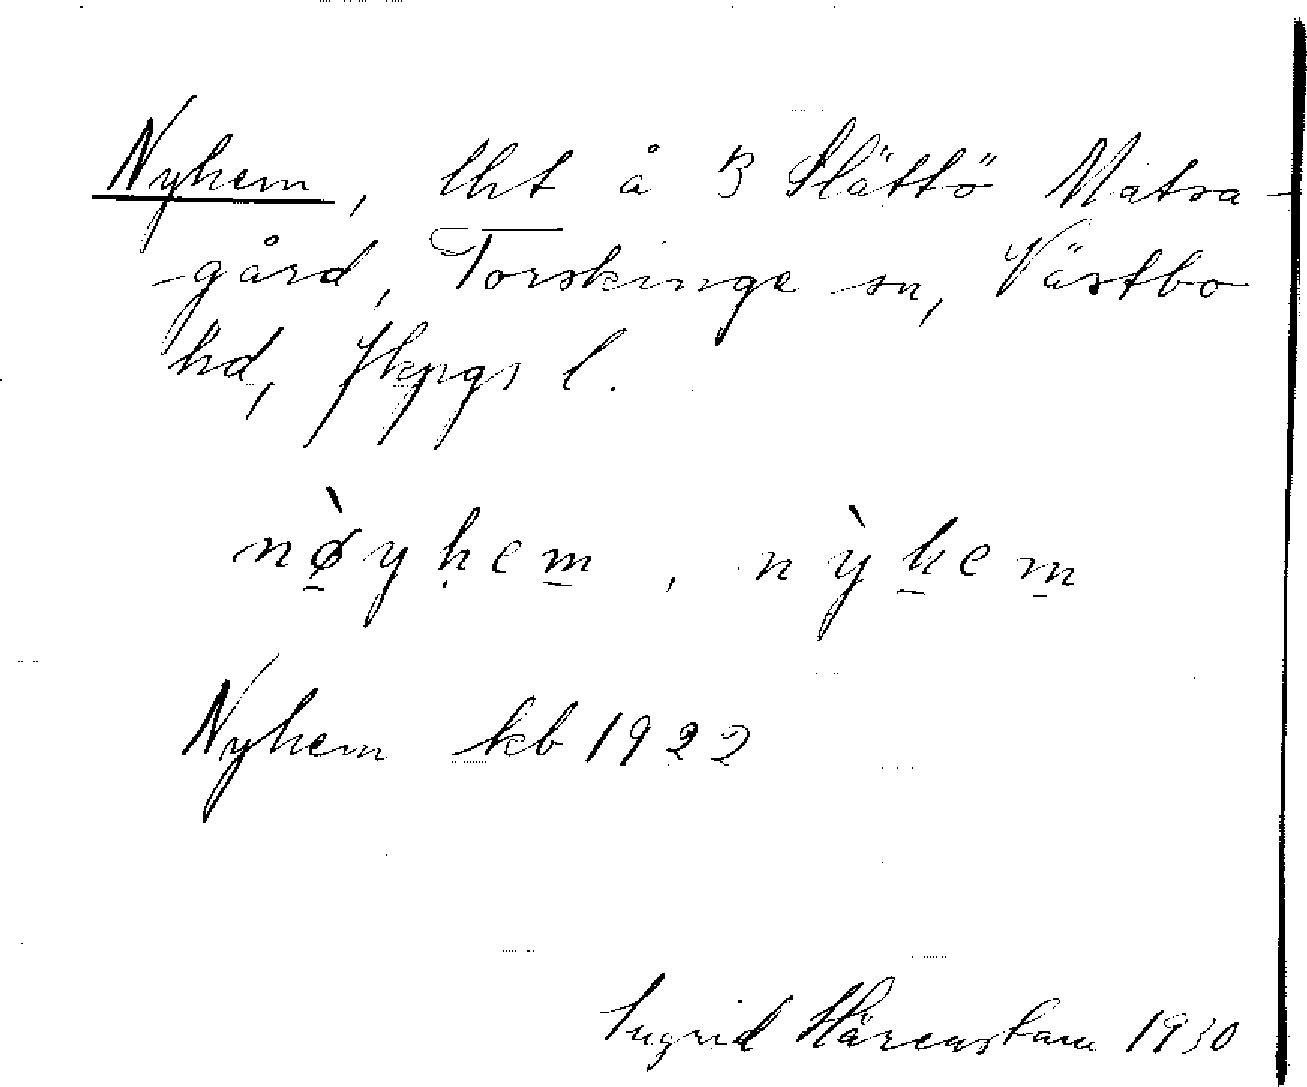 Nyhem, lht å 3 Slättö Matsa-
gård, Torskinge sn, Västbo
hd, Jkpgs l.
nø̀yhem, nỳhem
Nyhem kb 1922
Ingrid Härenstam 1930